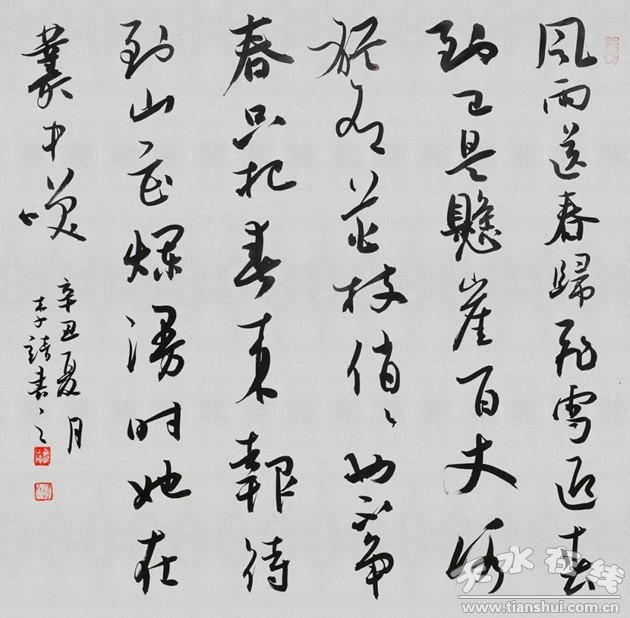 风雨送春歸飛雪迎春
到已是懸崖百丈冰
犹有花枝俏〻也不争
春只把春来報待
到山花爛漫时她在
叢中咲
辛丑夏月
李 书之
天水在线
www.tianshui.com.cn